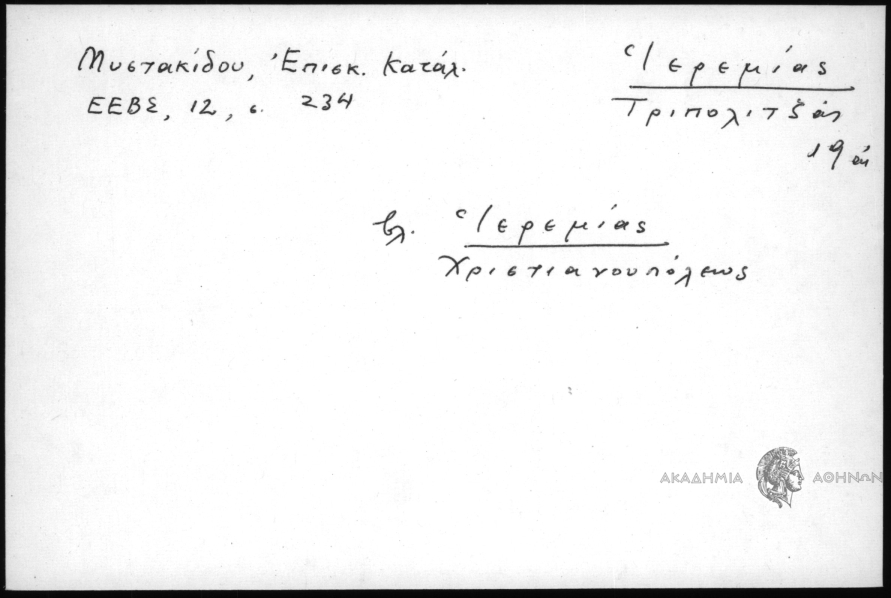 Μυστακίδου, Ἐπισκ. Κατάλ.
ΕΕΒΣ, 12, σ. 234
Ἱερεμίας
Τριπολιτζᾶς
19 αι
βλ. Ἱερεμίας
Χριστιανουπόλεως
ΑΚΑΔΗΜΙΑ ΑΘΗΝΩΝ